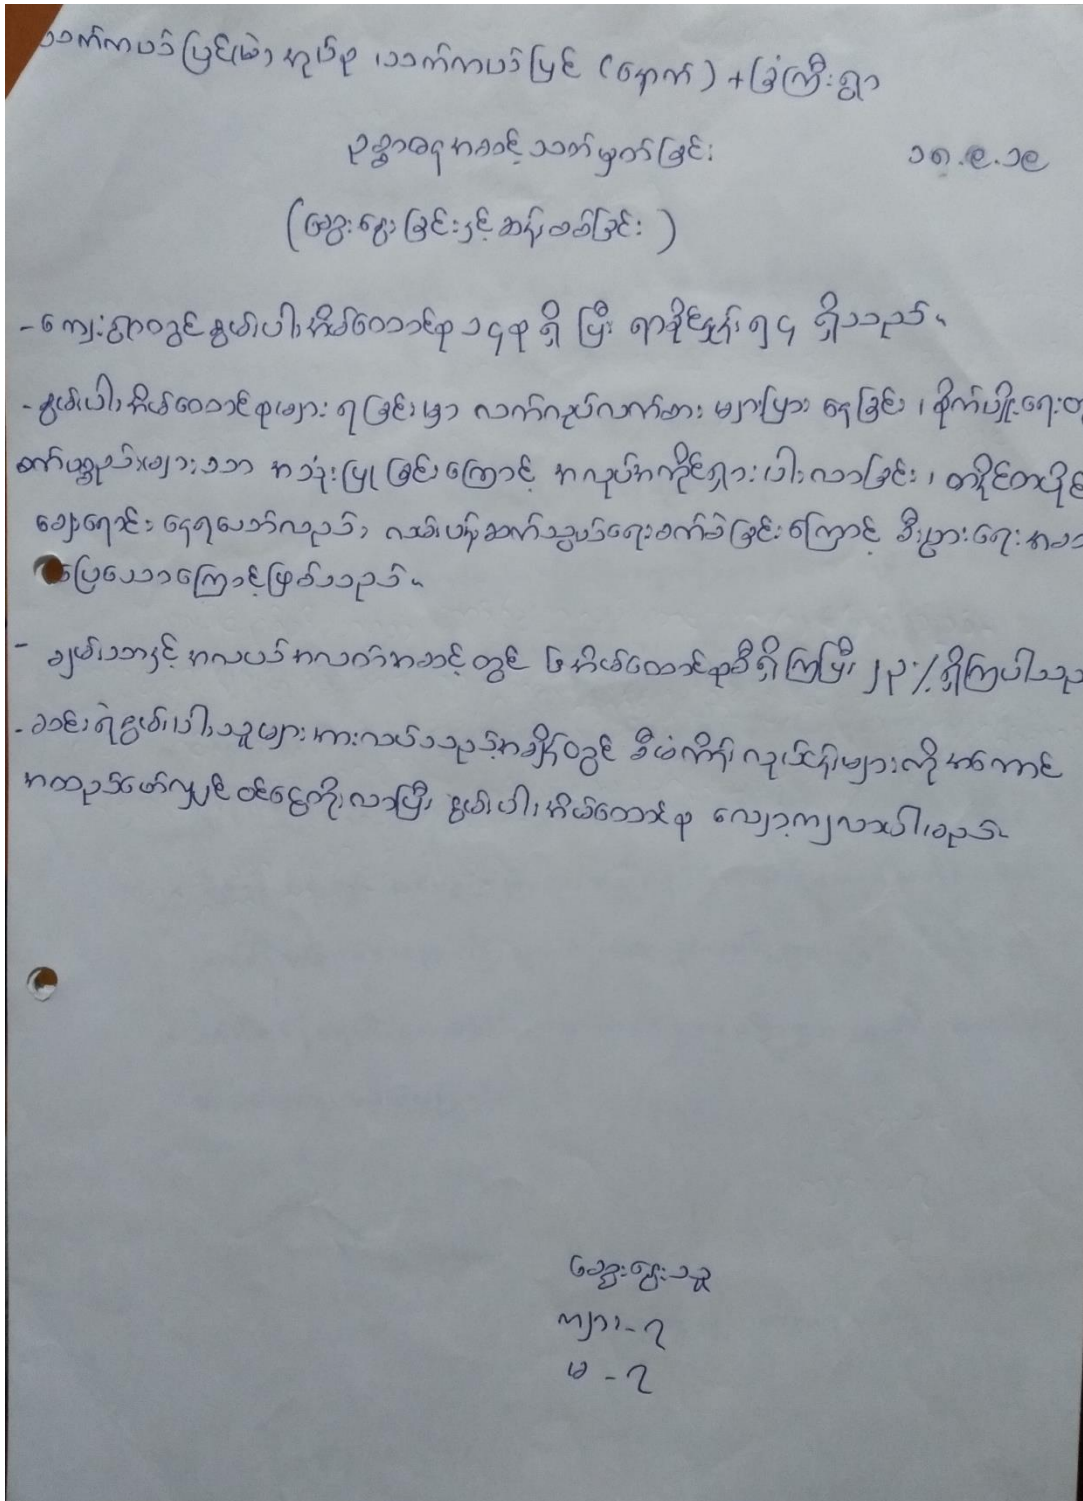 သက်ကယ်ပြင်(မဲ) အုပ်စု ၊ သက်ကယ်ပြင် (နောက်) + ခြံကြီးရွာ
ဥစ္စာဓနအဆင့် သတ်မှတ်ခြင်း ၁၈.၉.၁၉
(ဆွေးနွေးခြင်းနှင့် ဆန်းစစ်ခြင်း)
- ကျေးရွာတွင် နွမ်းပါးအိမ်ထောင်စု ၁၄စု ရှိ ပြီး ရာခိုင်နှုန်း ၅၄ ရှိသည်။
- နွမ်းပါးအိမ်ထောင်စုများ ရခြင်းမှာ လက်လုပ်လက်စား များပြား နေခြင်း ၊ စိုက်ပျိုးရေးတွ
စက်ပစ္စည်းများသာ အသုံးပြု ခြင်းကြောင့် အလုပ်အကိုင်ရှားပါးလာခြင်း ၊ တနိုင်တပိုင်
ဈေးရောင်း နေရသော်လည်း လမ်းပန်းဆက်သွယ်ရေးခက်ခဲခြင်းကြောင့် စီးပွားရေး အဆ
ပြေသောကြောင့်ဖြစ်သည်။
- ချမ်းသာနှင့် အလယ်အလတ်အဆင့်တွင် ၆အိမ်ထောင်စုစီရှိကြပြီး ၂၃% ရှိကြပါသည
- ဆင်းရဲနွမ်းပါးသူများအားလပ်သည့်အချိန်တွင် စီမံကိန်းလုပ်ငန်းများကို အကောင်
အထည်ဖော်လျှင် ဝင်ငွေတိုးလာပြီး နွမ်းပါးအိမ်ထောင်စု လျော့ကျလာပါမည်။
ဆွေးနွေးသူ
ကျား - ၇
မ - ၇